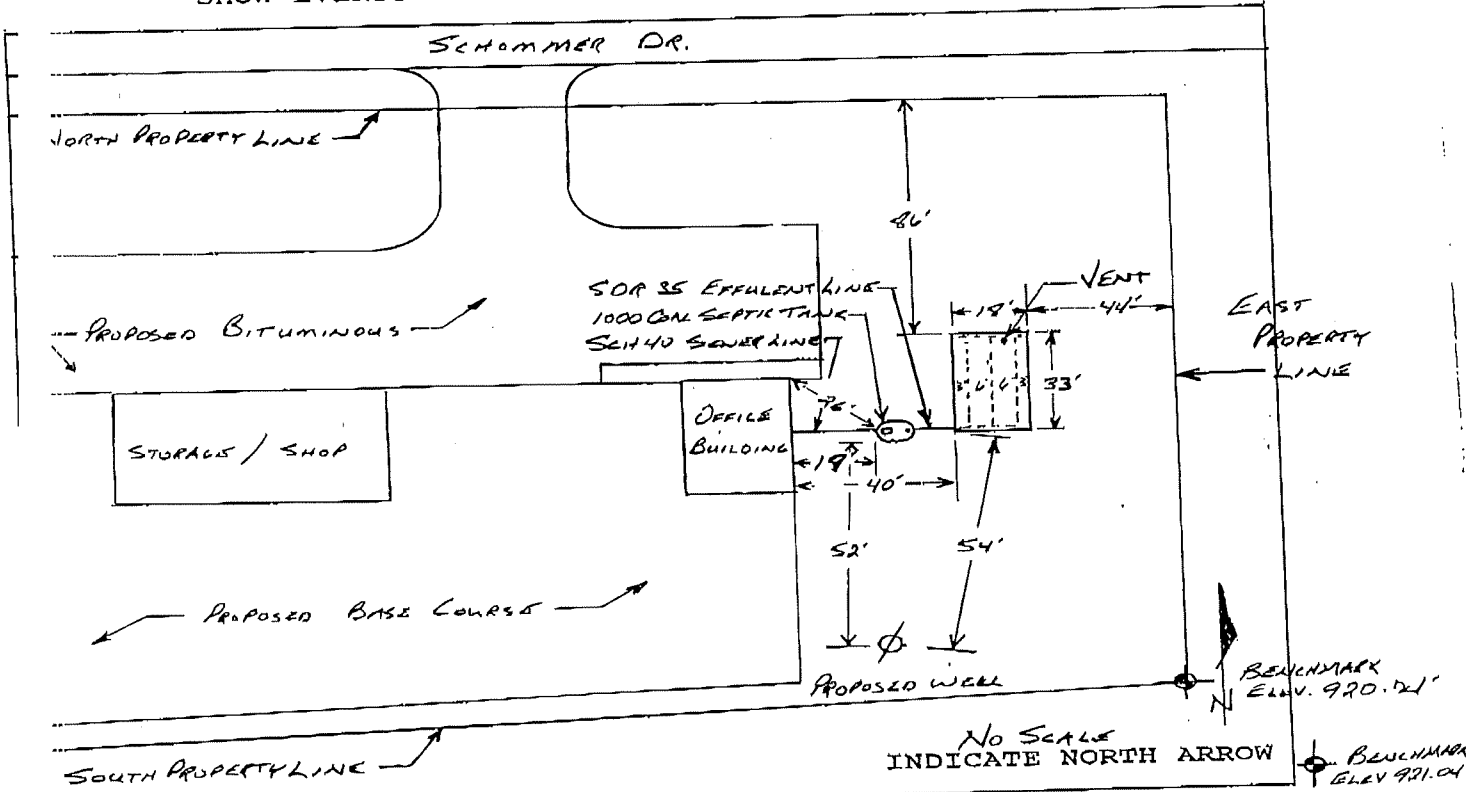 SCHOMMER DR.
NORTH PROPERTY LINE
86'
SDR 35 EFFULENT LINE
1000 GAL SEPTIC TANK
SCH 40 SEWER LINE
VENT
18'
44'
EAST
PROPERTY
LINE
PROPOSED BITUMINOUS
3' 6' 6' 3'
33'
OFFICE
BUILDING
STORAGE / SHOP
40'
52'
54'
PROPOSED BASE COURSE
PROPOSED WELL
BENCHMARK
ELEV. 920.
N
NO SCALE
INDICATE NORTH ARROW
BENCHMARK
ELEV 921.04
SOUTH PROPERTY LINE